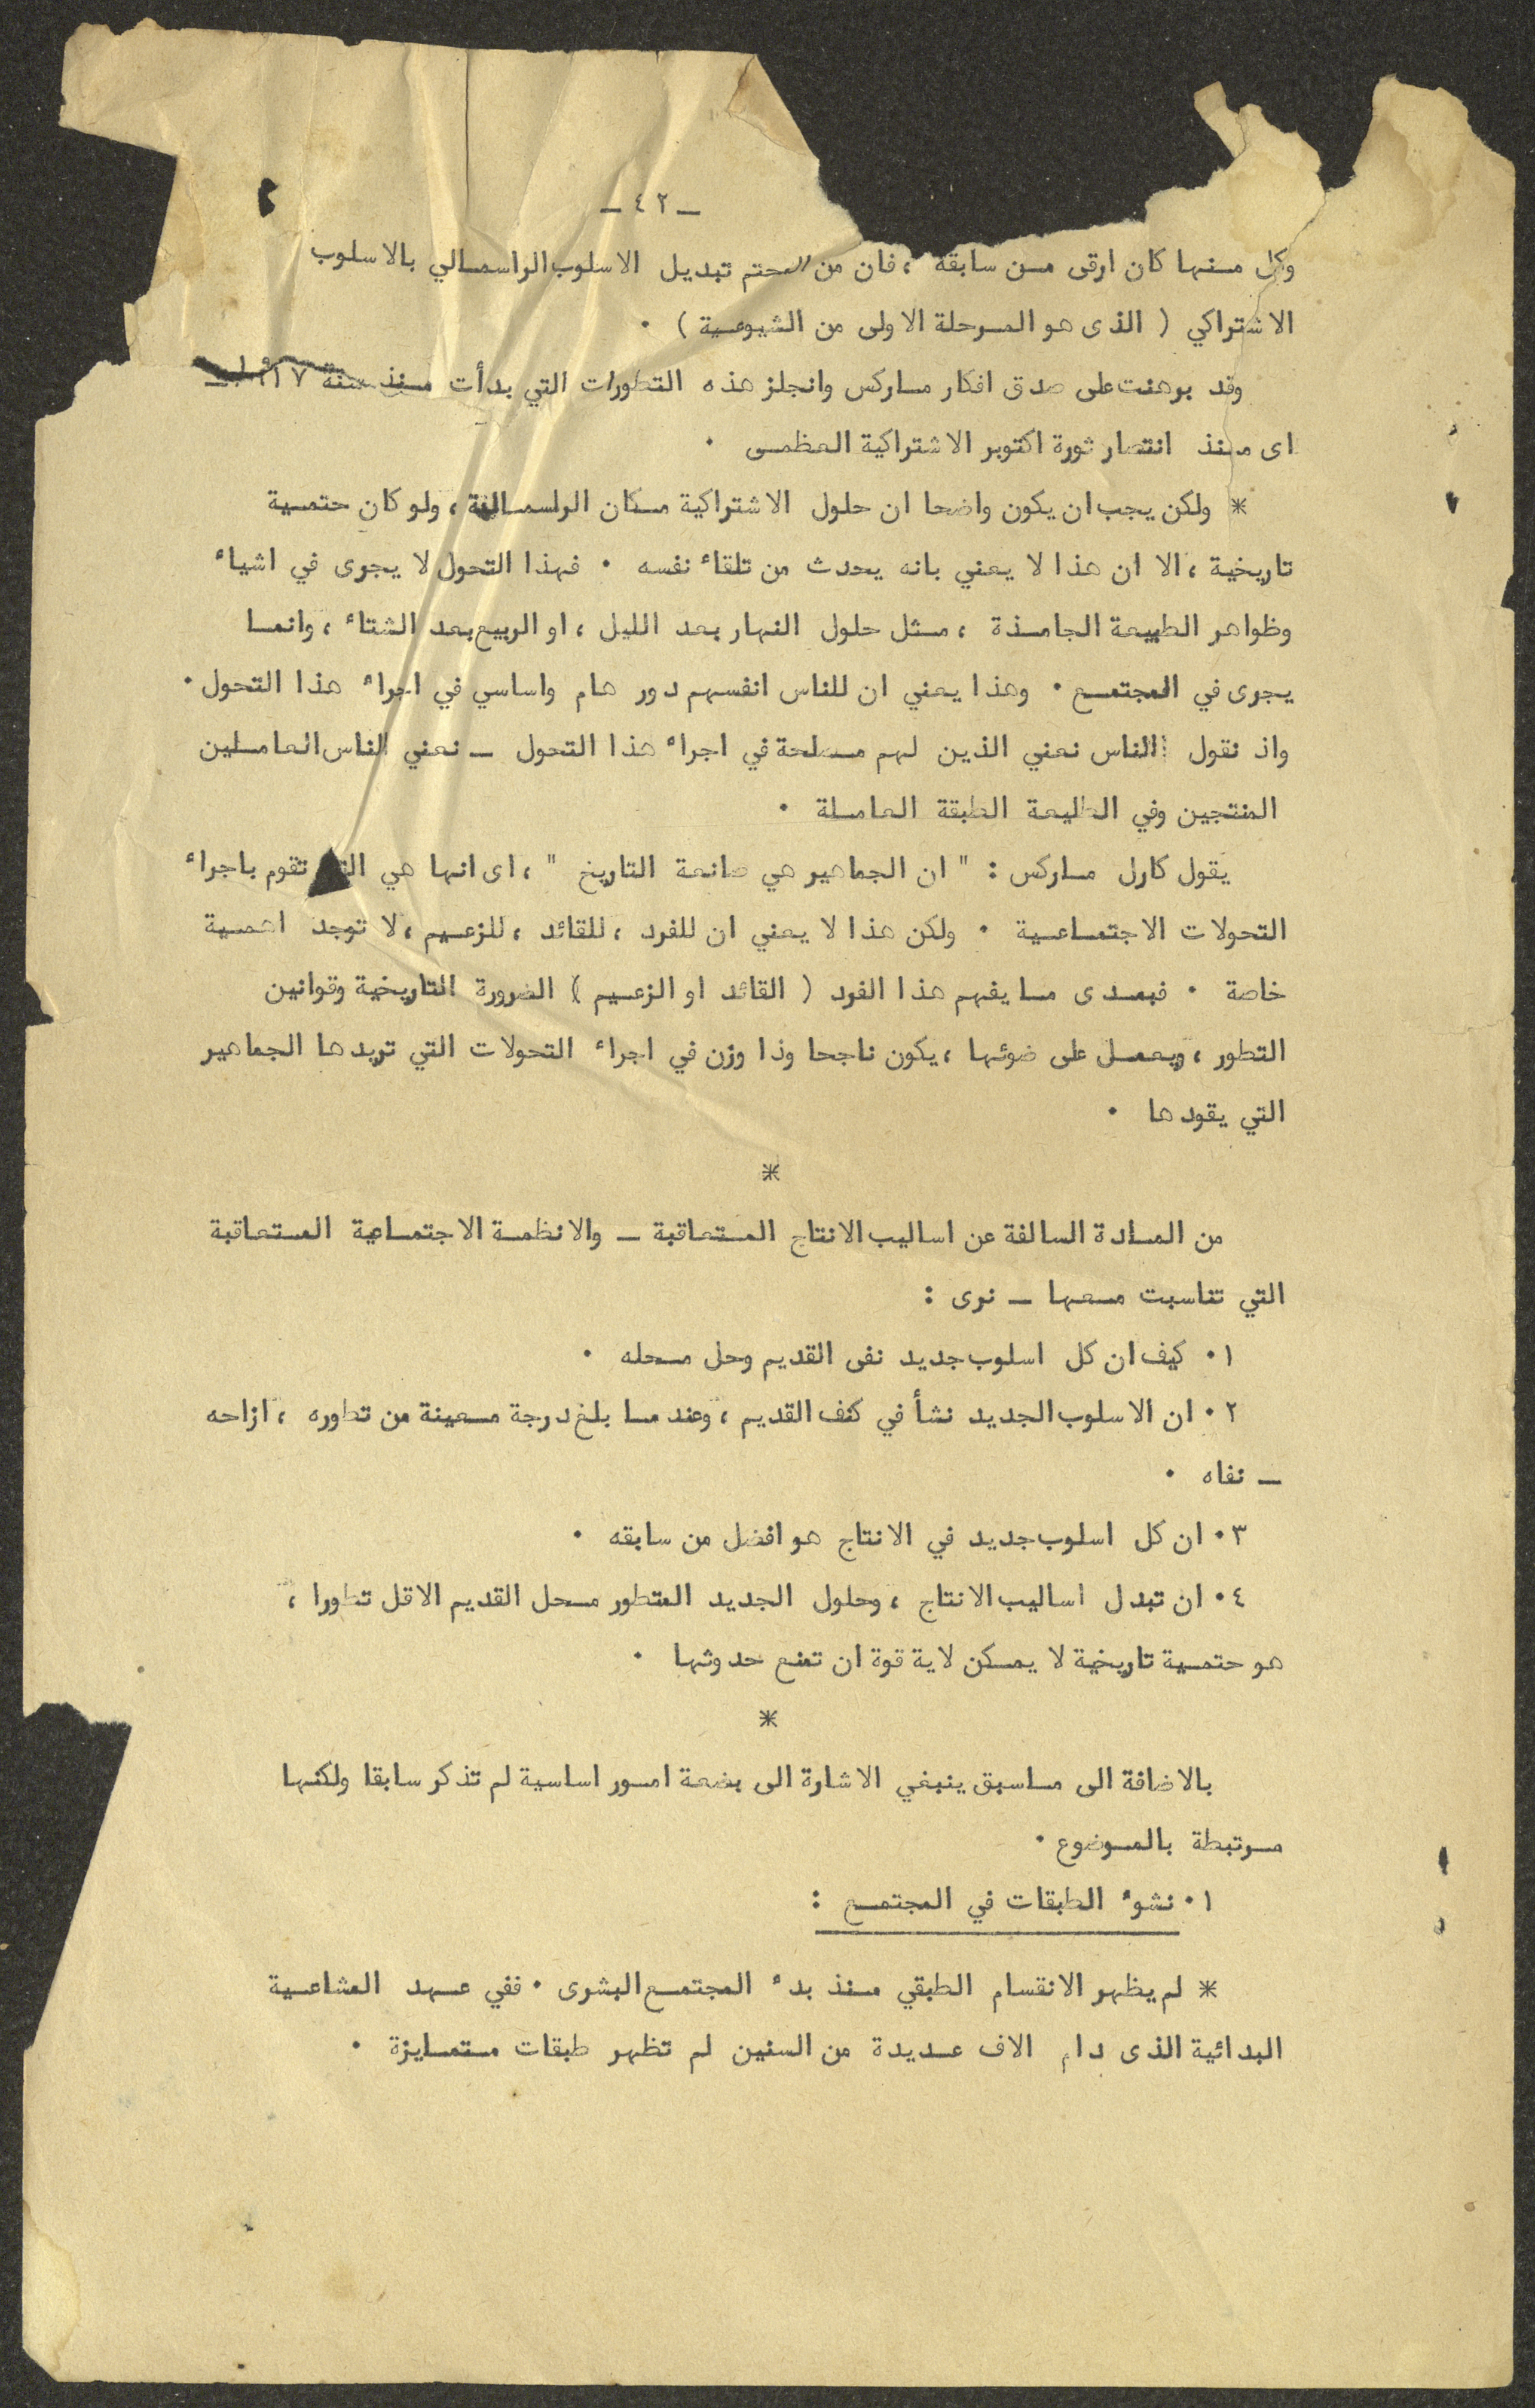 ـ ٤٢ ـ
وكل منها كان ارقى من سابقه ، فان من المحتم تبديل الاسلوب الراسمالي بالاسلوب
الاشتراكي ( الذى هو المرحلة الاولى من الشيوعية ) .
وقد برهنت على صدق افكار ماركس وانجلز هذه التطورات التي بدأت منذ سنة ١٩١٧ ـ
اى منذ انتصار ثورة اكتوبر الاشتراكية العظمى .
* ولكن يجب ان يكون واضحا ان حلول الاشتراكية مكان الراسمالية ، ولو كان حتمية
تاريخية ، الا ان هذا لا يعني بانه يحدث من تلقاء نفسه . فهذا التحول لا يجرى في اشياء
وظواهر الطبيعة الجامدة ، مثل حلول النهار بعد الليل ، او الربيع بعد الشتاء ، وانما
يجرى في المجتمع . وهذا يعني ان للناس انفسهم دور هام واساسي في اجراء هذا التحول .
واذ نقول الناس نعني الذين لهم مصلحة في اجراء هذا التحول ـ نعني الناس العاملين
المنتجين وفي الطليعة الطبقة العاملة .
يقول كارل ماركس : " ان الجماهير هي صانعة التاريخ " ، اى انها هي التي تقوم باجراء
التحولات الاجتماعية . ولكن هذا لا يعني ان للفرد ، للقائد ، للزعيم ، لا توجد اهمية
خاصة . فبمدى ما يفهم هذا الفرد ( القائد او الزعيم ) الضرورة التاريخية وقوانين
التطور ، ويعمل على ضوئها ، يكون ناجحا وذا وزن في اجراء التحولات التي تريدها الجماهير
التي يقودها .
*
من المادة السالفة عن اساليب الانتاج المتعاقبة ـ والانظمة الاجتماعية المتعاقبة
التي تناسبت معها ـ نرى :
١. كيف ان كل اسلوب جديد نفى القديم وحل محله .
٢. ان الاسلوب الجديد نشأ في كنف القديم ، وعندما بلغ درجة معينة من تطوره ، ازاحه
ـ نفاه .
٣. ان كل اسلوب جديد في الانتاج هو افضل من سابقه .
٤. ان تبدل اساليب الانتاج ، وحلول الجديد المتطور محل القديم الاقل تطورا ،
هو حتمية تاريخية لا يمكن لاية قوة ان تمنع حدوثها .
*
بالاضافة الى ماسبق ينبغي الاشارة الى بضعة امور اساسية لم تذكر سابقا ولكنها
مرتبطة بالموضوع .
١. نشوء الطبقات في المجتمع :
* لم يظهر الانقسام الطبقي منذ بدء المجتمع البشرى . ففي عهد المشاعية
البدائية الذى دام الاف عديدة من السنين لم تظهر طبقات متمايزة .